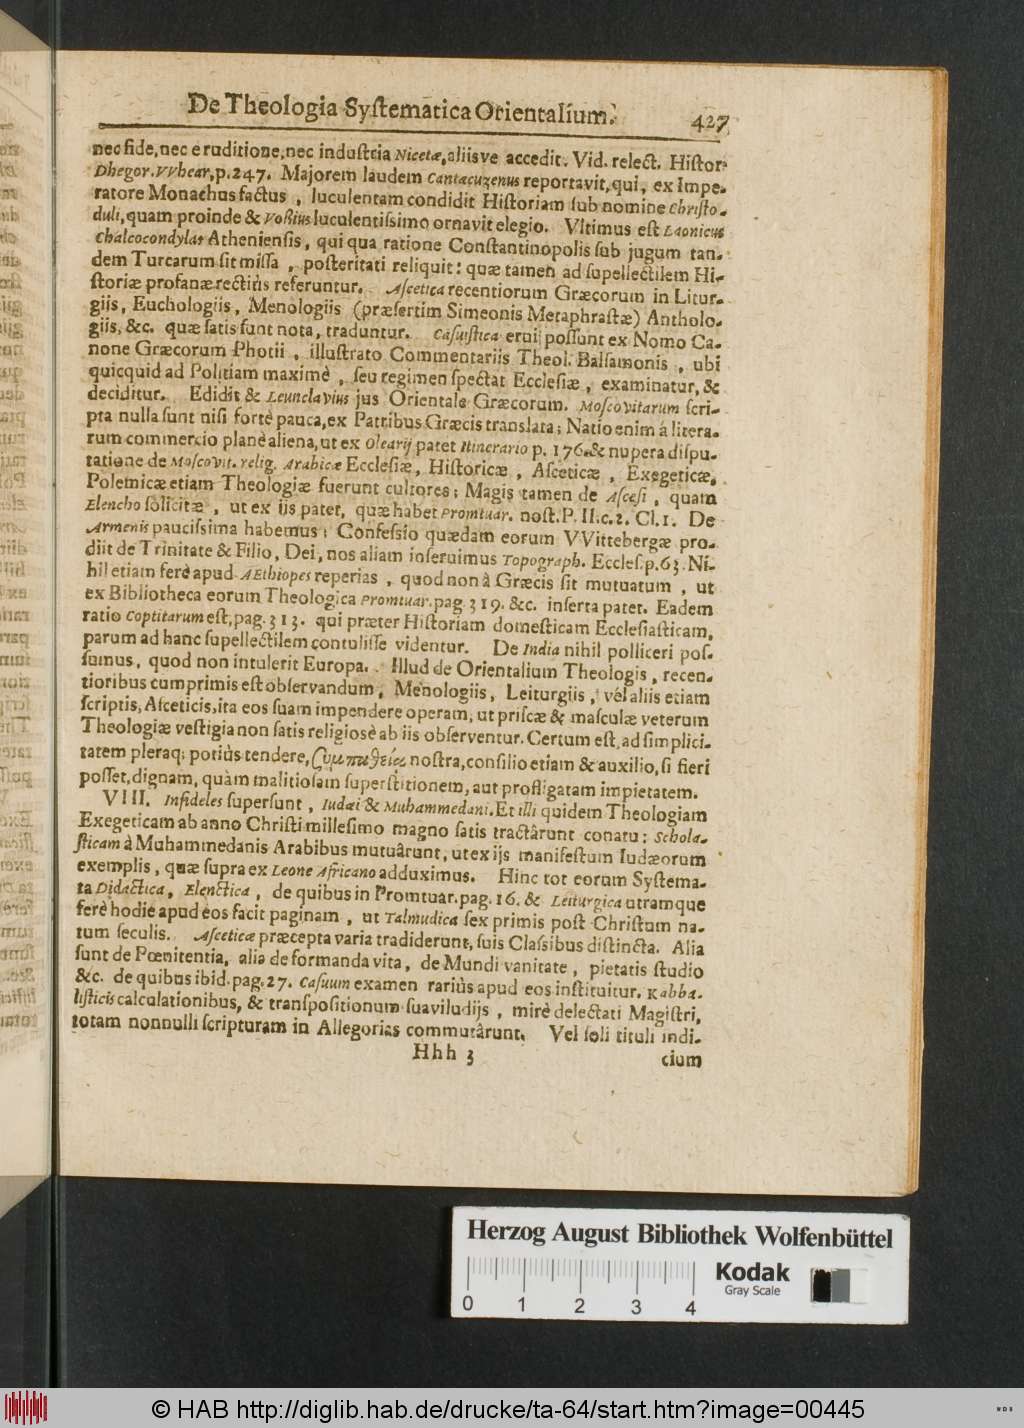 De Theologia Syſtematica Orientalium. 427
nec fide, nec eruditione, nec induſtria Nicetæ, aliisve accedit. Vid. relect. Hiſtor.
Dhegor. VVhear, p. 247. Majorem laudem Cantacuzenus reportavit, qui, ex Impe-
ratore Monachus factus, luculentam condidit Hiſtoriam ſub nomine Chriſto-
duli, quam proinde & Voßius luculentiſsimo ornavit elegio. Vltimus eſt Laonicus
Chalcocondylas Athenienſis, qui qua ratione Conſtantinopolis ſub jugum tan-
dem Turcarum ſit miſſa, poſteritati reliquit: quæ tamen ad ſupellectilem Hi-
ſtoriæ profanæ rectiùs referuntur. Aſcetica recentiorum Græcorum in Litur-
giis, Euchologiis, Menologiis (præſertim Simeonis Metaphraſtæ) Antholo-
giis, &c. quæ ſatis ſunt nota, traduntur. Caſuiſtica erui poſſunt ex Nomo Ca-
none Græcorum Photii, illuſtrato Commentariis Theol. Balſamonis, ubi
quicquid ad Politiam maximè, ſeu regimen ſpectat Eccleſiæ, examinatur, &
deciditur. Edidit & Leunclavius jus Orientale Græcorum. Moſcovitarum ſcri-
pta nulla ſunt niſi fortè pauca, ex Patribus Græcis translata; Natio enim á litera-
rum commercio planè aliena, ut ex Olearij patet Itinerario p. 176. & nupera diſpu-
tatione de Moſcovit. relig. Arabicæ Eccleſiæ, Hiſtoricæ, Aſceticæ, Exegeticæ,
Polemicæ etiam Theologiæ fuerunt cultores; Magis tamen de Aſceſi, quam
Elencho ſolicitæ, ut ex ijs patet, quæ habet Promtuar. noſt. P. II. c. 2. Cl. 1. De
Armenis pauciſsima habemus: Confeſsio quædam eorum VVittebergæ pro-
diit de Trinitate & Filio, Dei, nos aliam inſeruimus Topograph. Eccleſ. p. 63. Ni-
hil etiam ferè apud AEthiopes reperias, quod non à Græcis ſit mutuatum, ut
ex Bibliotheca eorum Theologica Promtuar. pag. 319. &c. inſerta patet. Eadem
ratio Coptitarum eſt, pag. 313. qui præter Hiſtoriam domeſticam Eccleſiaſticam,
parum ad hanc ſupellectilem contuliſſe videntur. De India nihil polliceri poſ-
ſumus, quod non intulerit Europa. Illud de Orientalium Theologis, recen-
tioribus cumprimis eſt obſervandum, Menologiis, Leiturgiis, vel aliis etiam
ſcriptis, Aſceticis, ita eos ſuam impendere operam, ut priſcæ & maſculæ veterum
Theologiæ veſtigia non ſatis religiosè ab iis obſerventur. Certum eſt, ad ſimplici-
tatem pleraq; potiùs tendere, συμπαθείας noſtra, conſilio etiam & auxilio, ſi fieri
poſſet, dignam, quàm malitioſam ſuperſtitionem, aut profligatam impietatem.
VIII. Infideles ſuperſunt, Iudæi & Muhammedani. Et illi quidem Theologiam
Exegeticam ab anno Chriſti milleſimo magno ſatis tractârunt conatu: Schola-
ſticam à Muhammedanis Arabibus mutuârunt, ut ex ijs manifeſtum Iudæorum
exemplis, quæ ſupra ex Leone Africano adduximus. Hinc tot eorum Syſtema-
ta Didactica, Elenctica, de quibus in Promtuar. pag. 16. & Leiturgica utramque
ferè hodie apud eos facit paginam, ut Talmudica ſex primis poſt Chriſtum na-
tum ſeculis. Aſceticæ præcepta varia tradiderunt, ſuis Claſsibus diſtincta. Alia
ſunt de Pœnitentia, alia de formanda vita, de Mundi vanitate, pietatis ſtudio
&c. de quibus ibid. pag. 27. Caſuum examen rariùs apud eos inſtituitur. Kabba-
liſticis calculationibus, & tranſpoſitionum ſuaviludijs, mirè delectati Magiſtri,
totam nonnulli ſcripturam in Allegorias commutârunt. Vel ſoli tituli indi-
Hhh 3 cium
Herzog August Bibliothek Wolfenbüttel
Kodak
Gray Scale
0 1 2 3 4
© HAB http://diglib.hab.de/drucke/ta-64/start.htm?image=00445